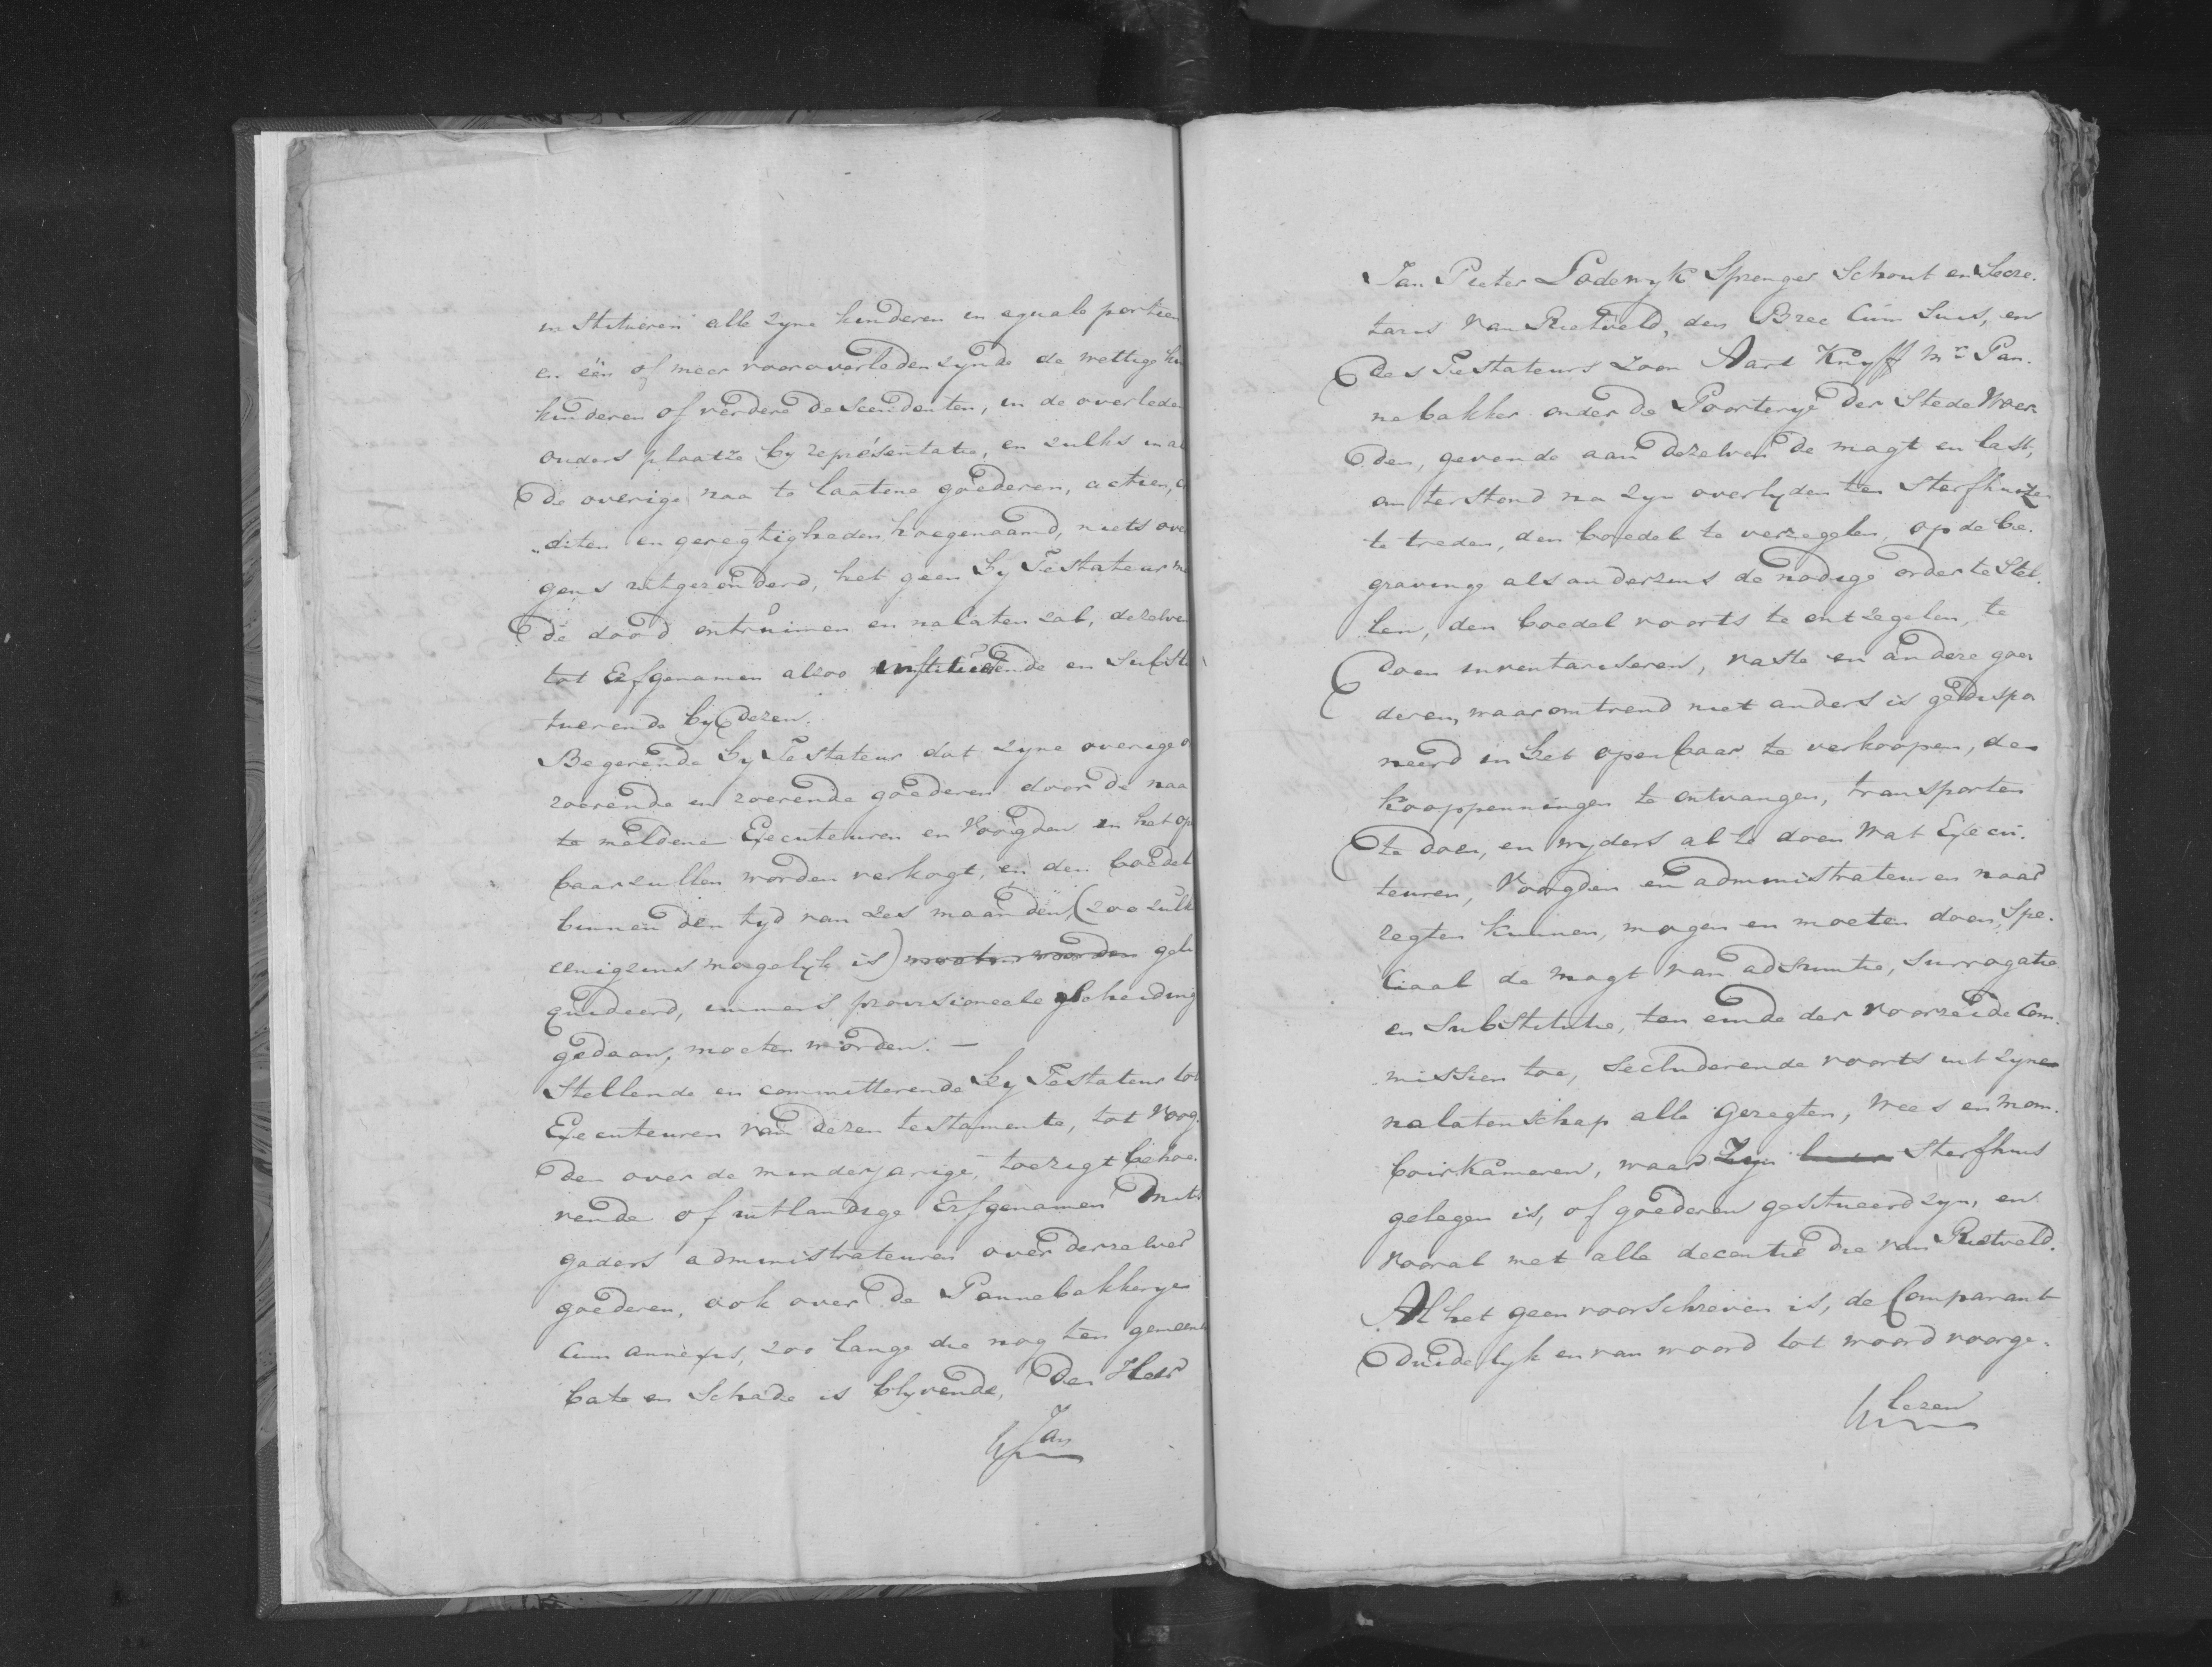 in Stitueren alle zyne kinderen in equale portien
en één of meer vooroverleden zynde de wettige
kinderen of verdere descendenten, in de overleden
ouders plaatze by representatie, en zulks in
de overige naa te laatene goederen, actien,
„diten en geregtigheden hoegenaamd, niets
gens uitgezonderd, het geen hy Testateur
de dood ontruimen en nalaten zal, dezelven
tot Erfgenamen alzoo institueerende en Substi
tuerende by dezen.
Begerende hy Testateur dat zyne overige
roerende en roerende goederen door de naa
te meldene Executeuren en Voogden in het op
baar zullen worden verkogt, en den boedel
binnen den tyd van zes maanden, (zoo zulks
eenigzins mogelyk is) moeten worden geli
quideerd, immers provisioneele scheiding
gedaan, moeten worden. —
Stellende en committerende hy Testateur tot
Executeuren van dezen testamente, tot Voog.
den over de minderjarige, toezigt behoe.
vende of uitlandige Erfgenamen mits
gaders administrateuren over derzelver
goederen, ook over de Pannebakkerye
Cum annexis, zoo lange die nog ten gemeene
bate en Schade is blyvende, Den Heer
Jan
Jan Pieter Lodewyk Sprenger Schout en Secre.
taris van Rietveld, den Bree Cum Suis, en
des Testateurs Zoon Aart Knyff Mr. Pan.
nebakker onder de Poorterye der Stede Woer
den, gevende aan dezelven de magt en last,
om terstond na zyn overlyden ten Sterfhuize
te treden, den boedel te verzegelen, op de be.
graving als anderzins de nodige order te Stel.
len, den boedel voorts te ontzegelen, te
doen inventariseren, vaste en andere goe
deren, waaromtrend niet anders is gedispo
neerd in het openbaar te verkoopen, de
kooppenningen te ontvangen, transporten
te doen, en wyders al te doen wat Execu.
teuren, Voogden en administrateuren naar
regten kunnen, mogen en moeten doen, Spe.
Ciaal de magt van adsumtie, Surrogatie
en Substitutie, ten einde der voorzeide Com.
missien toe, Secluderende voorts uit zyne
nalatenschap alle Geregten, Wees en Mom.
boirkameren, waar Zyn Sterfhuis
gelegen is, of goederen gesitueerd zyn, en
vooral met alle decentie die van Rietveld.
Al het geen voorschreven is, de Comparant
duidelyk en van woord tot woord voorge.
lezen